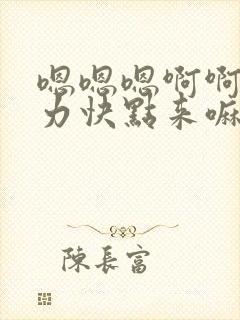 嗯嗯嗯啊啊
力快點来嘛
陳長富